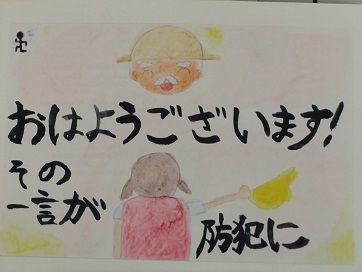 おはようございます!
その
一言が
防犯に